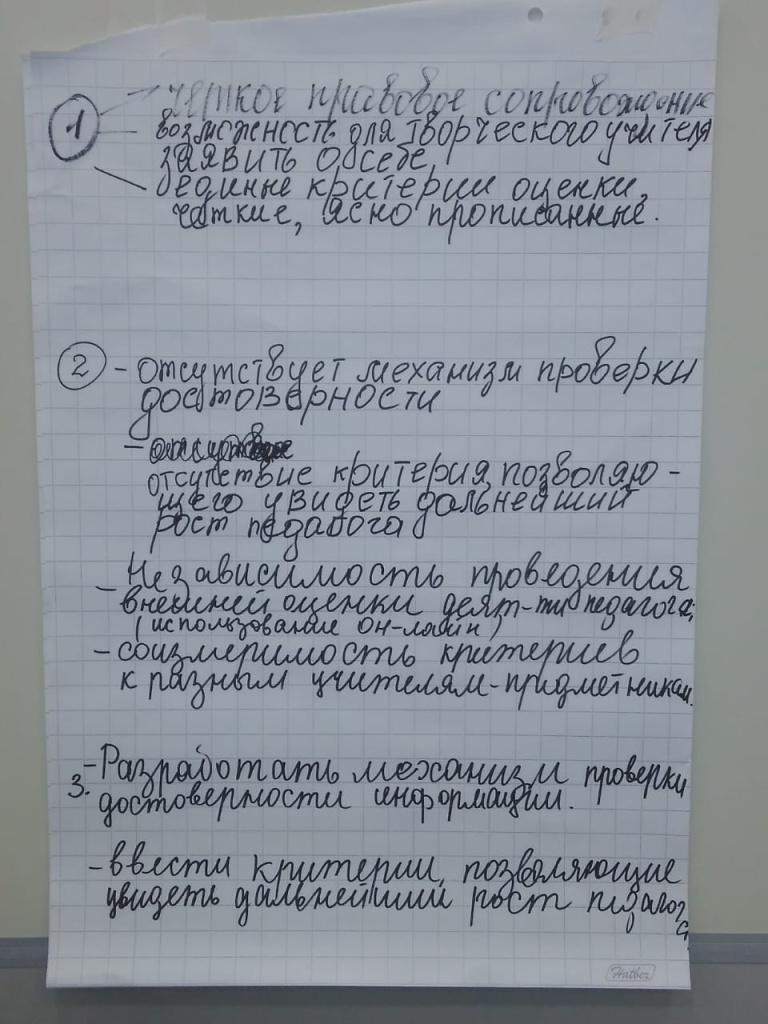 1 - чёткое правовое сопровождение
- возможность для творческого учителя
заявить о себе,
- единые критерии оценки,
чёткие, ясно прописанные.
2 - отсутствует механизм проверки
достоверности
-
отсутствие критерия, позволяю-
щего увидеть дальнейший
рост педагога
- Независимость проведения
внешней оценки деят-ти педагога;
(использование он-лайн)
- соизмеримость критериев
к разным учителям-предметникам.
3. - Разработать механизм проверки
достоверности информации.
- ввести критерии, позволяющие
увидеть дальнейший рост педагога
Hatber